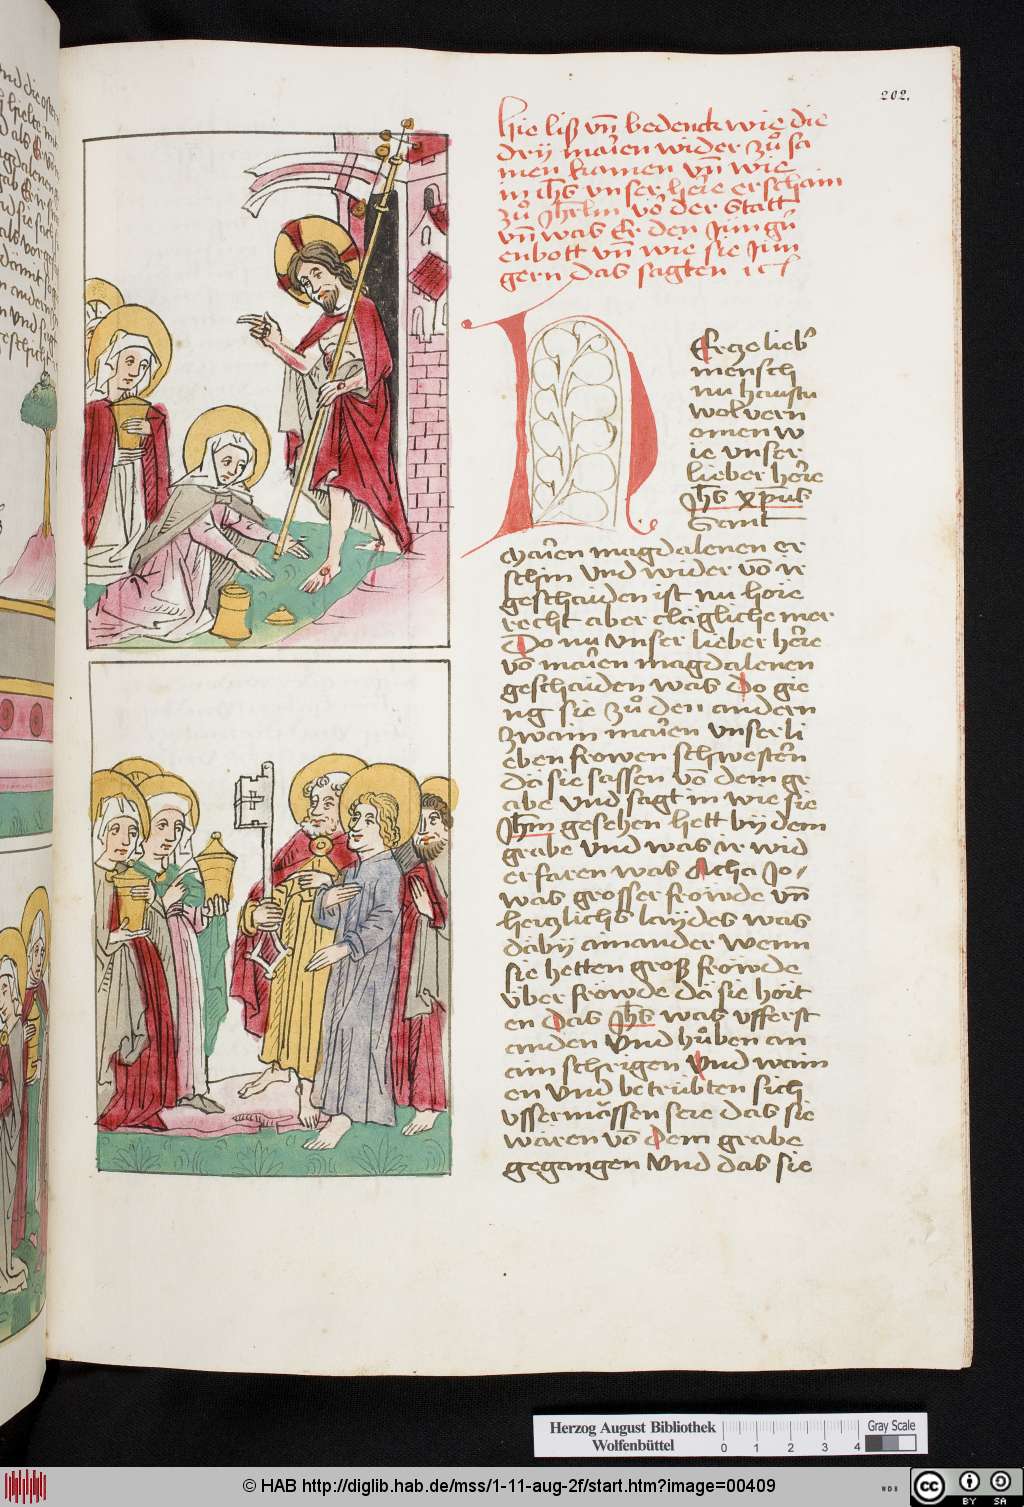 202.
hie liß vn̄ bedenck wie die
drÿ mar̄ien wider zuͦ sa
men kamen vn̄ wie
in ih̄s vnser here erschain
zuͦ Jhr̄lm vō der Statt
vn̄ was Er den Jüngn̄
enbott vn̄ wie sie Jün
gern das sagten ꝛc
mensch
wol vern
omen w
ie vnser
lieber her̄e
Jh̄s xp̄us
Sant
mar̄ien magdalenen er
schin vnd wider vō ir
geschaiden ist nu höre
recht aber clägliche mer
Do nu vnser lieber her̄e
vō mar̄ien magdalenen
geschaiden was do gie
ng sie zuͦ den andern
zwain mar̄ien vnser li
eben frowen schwestern̄
da sie sassen vō dem gr
abe vnd sagt in wie sie
Jhm̄ gesehen hett bÿ dem
grabe vnd was ir wid
erfaren was Acha Jo
was grosser fröwde vn̄
hertzlichs laÿdes was
dabÿ ainander wenn
sie hetten groß fröwde
über fröwde da sie hört
en das Jh̄s was vfferst
anden vnd huͦben an
ain schrigen vnd wain
en vnd betrübten sich
vssermässen sere das sie
wären vō dem grabe
gegangen vnd das sie
Herzog August Bibliothek
Wolfenbüttel
0 1 2 3 4
Gray Scale
© HAB http://diglib.hab.de/mss/1-11-aug-2f/start.htm?image=00409
cc BY SA